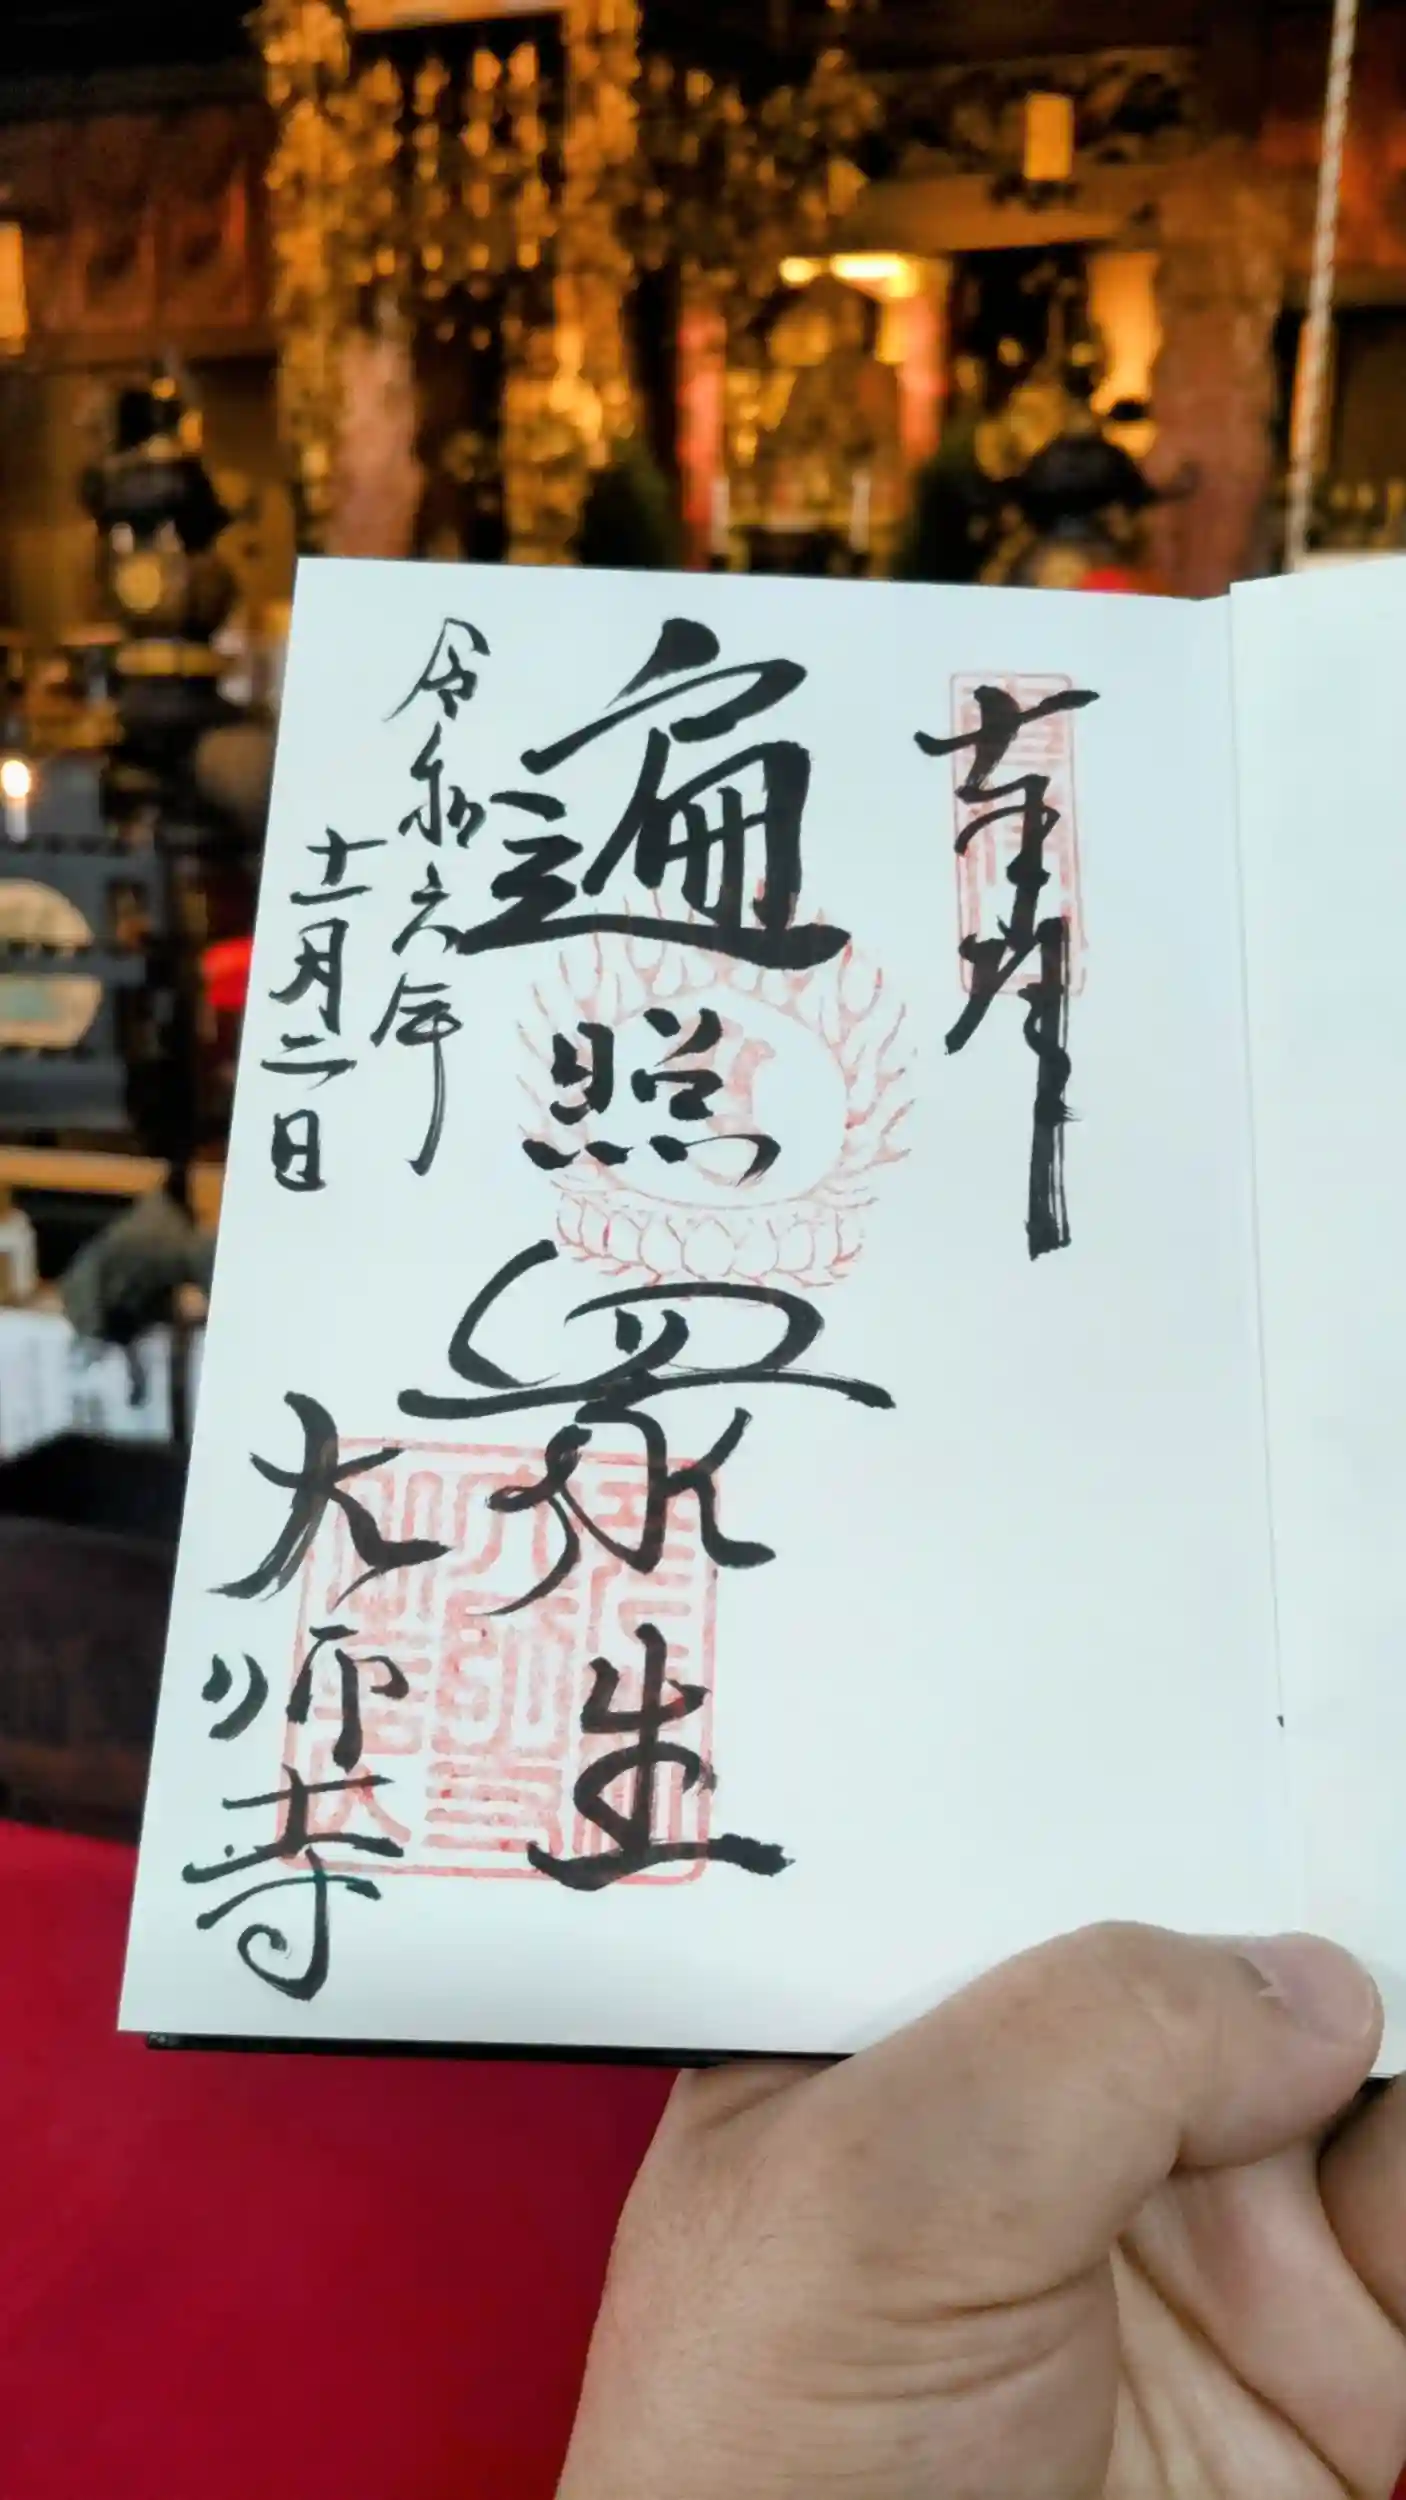 奉拝
遍照
衆生
令和六年
十一月二日
大師寺